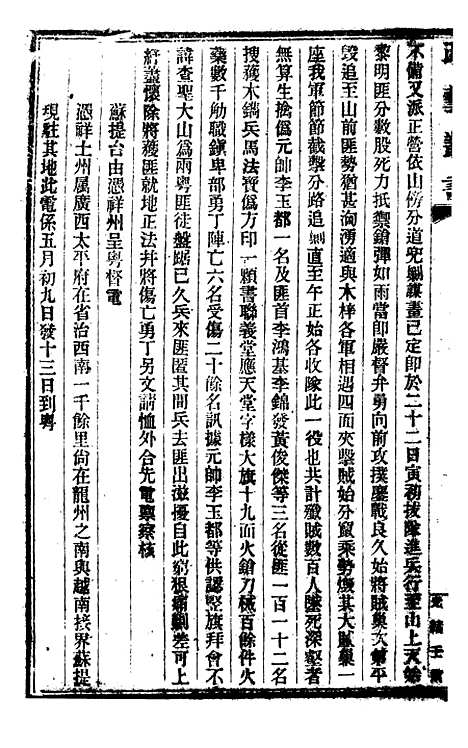 木備又派正營依山傍分道兜剿謀畫已定即於二十二日寅初拔隊進兵行至山上天始
黎明匪分數股死力抵禦鎗彈如雨當即嚴督弁勇向前攻撲鏖戰良久始將賊巢次第平
毀追至山前匪勢猶甚洶湧適與木梓各軍相遇四面夾擊賊始分竄乘勢燬其大賊巢一
座我軍節節截擊分路追剿直至午正始各收隊此一役也共計殲賊數百人墜死深壑者
無算生擒僞元帥李玉都一名及匪首李鴻基李錦發黃俊傑等三名從匪一百一十二名
搜獲木鎬兵馬法寶僞方印一顆書聯義堂應天堂字樣大旗十九面火鎗刀械百餘件火
藥數千觔職鎭卑部勇丁陣亡六名受傷二十餘名訊據元帥李玉都等供認堅旗拜會不
諱查聖大山爲兩粤匪徒盤踞已久兵來匪匿其間兵去匪出滋擾自此窮狠痛剿差可上
紓藎懷除將獲匪就地正法并將傷亡勇丁另文請恤外合先電稟察核
蘇提台由憑祥州呈粤督電
憑祥土州屬廣西太平府在省治西南一千餘里尙在龍州之南與越南接界蘇提
現駐其地此電係五月初九日發十三日到粤